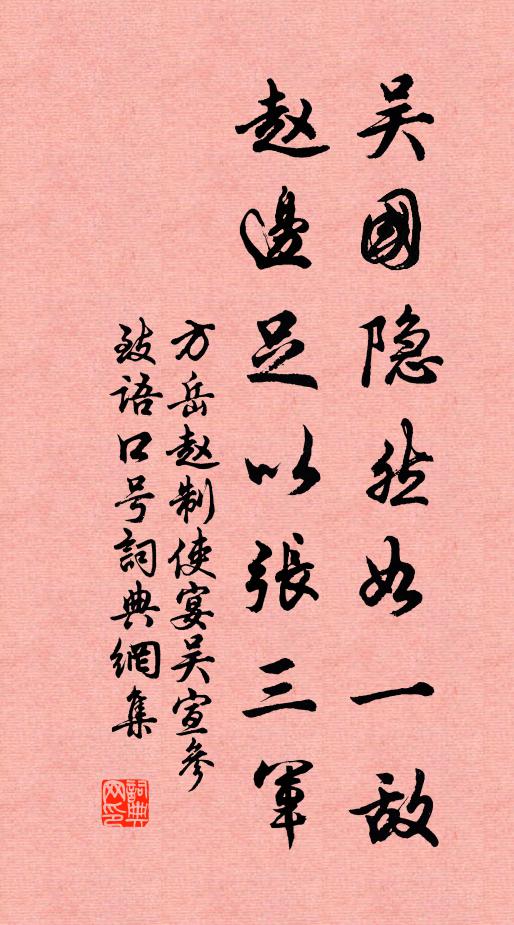 吴國隐然如一敌
赵邊足以張三軍
方岳赵制使宴吴宣參
致语口号詞典網集
詞典网印